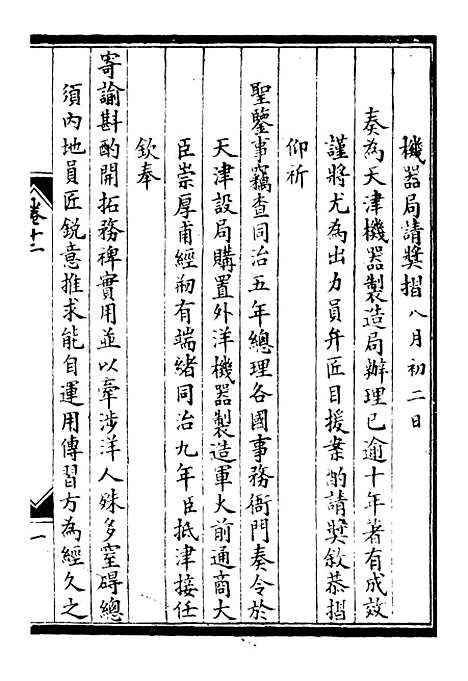 機器局請奬摺八月初二日
奏為天津機器製造局辦理已逾十年著有成效
謹將尤為出力員弁匠目援案酌請奬敘恭摺
仰祈
聖鑒事竊查同治五年總理各國事務衙門奏令於
天津設局購置外洋機器製造軍火前通商大
臣崇厚甫經剏有端緒同治九年臣抵津接任
欽奉
寄諭斟酌開拓務裨實用並以牽涉洋人殊多窒碍總
須內地員匠銳意推求能自運用傳習方為經久之
卷十二
一